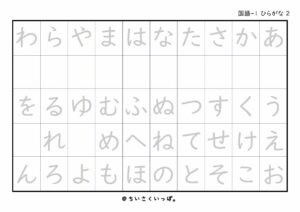 国語-1 ひらがな 2
あ うえお
か くけこ
さ すせそ
た つてと
な ぬねの
は ふへほ
ま むめも
や ゆ よ
ら るれろ
わ を ん
@ちいさくいっぽ。